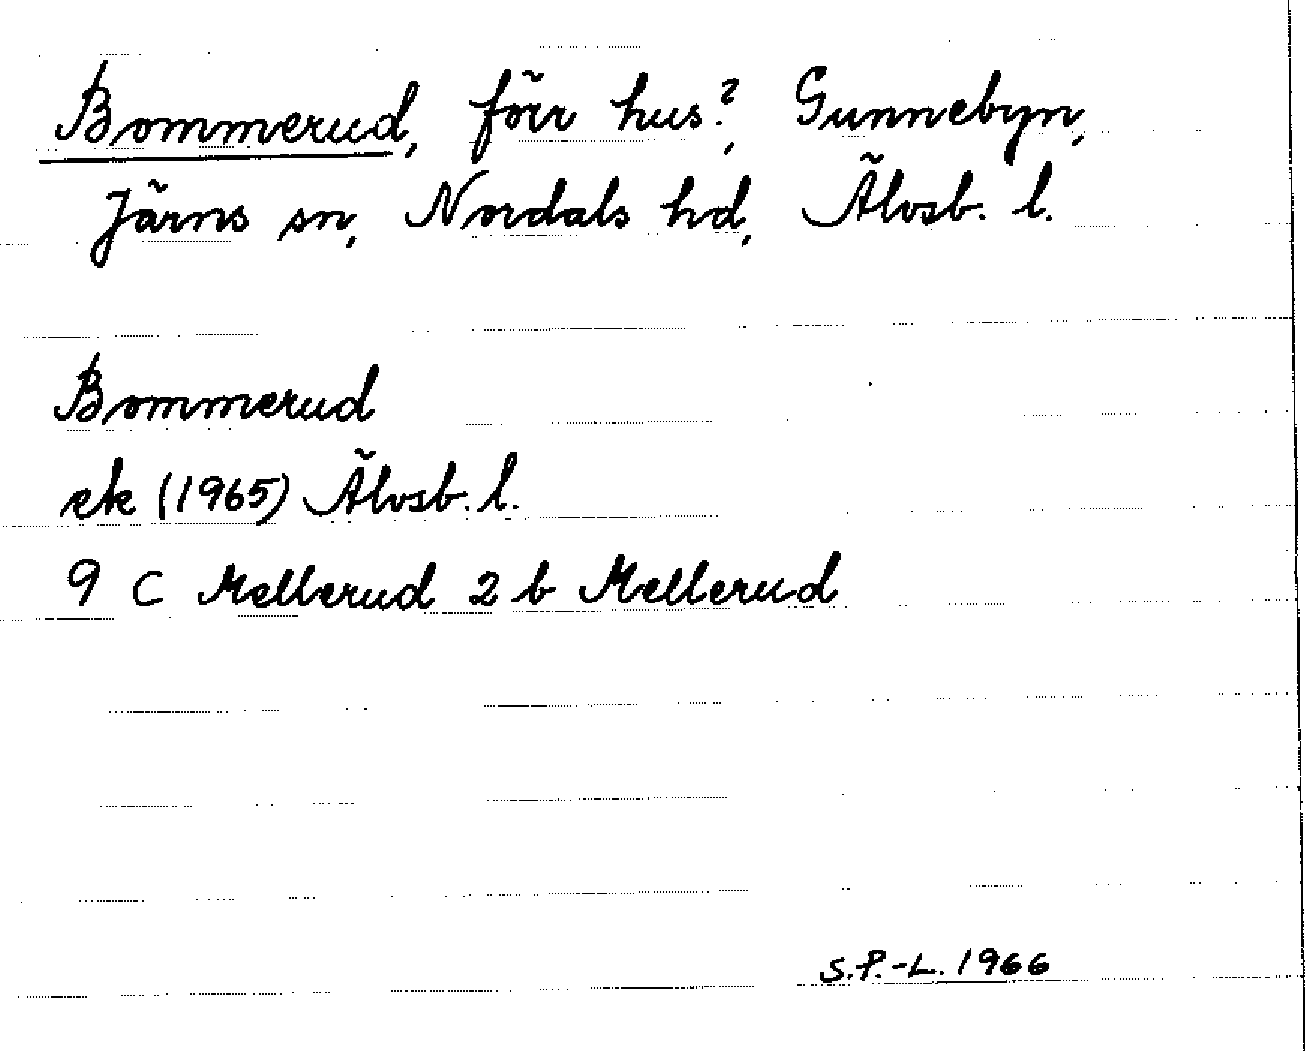 Bommerud, förr hus?, Gunnebyn,
Järns sn, Nordals hd, Älvsb. l.
Bommerud
ek (1965) Älvsb. l.
9 C Mellerud 2 b Mellerud
S.P.-L. 1966